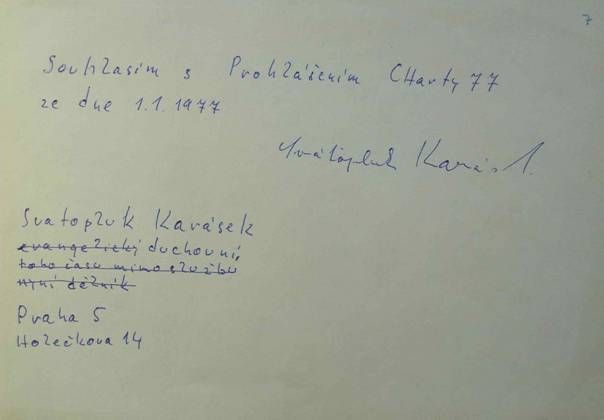 7
Souhlasím s Prohlášením Charty 77
ze dne 1.1.1977
Svatopluk Karásek
Svatopluk Karásek
evangelický duchovní,
toho času mimo službu
nyní dělník
Praha 5
Holečkova 14